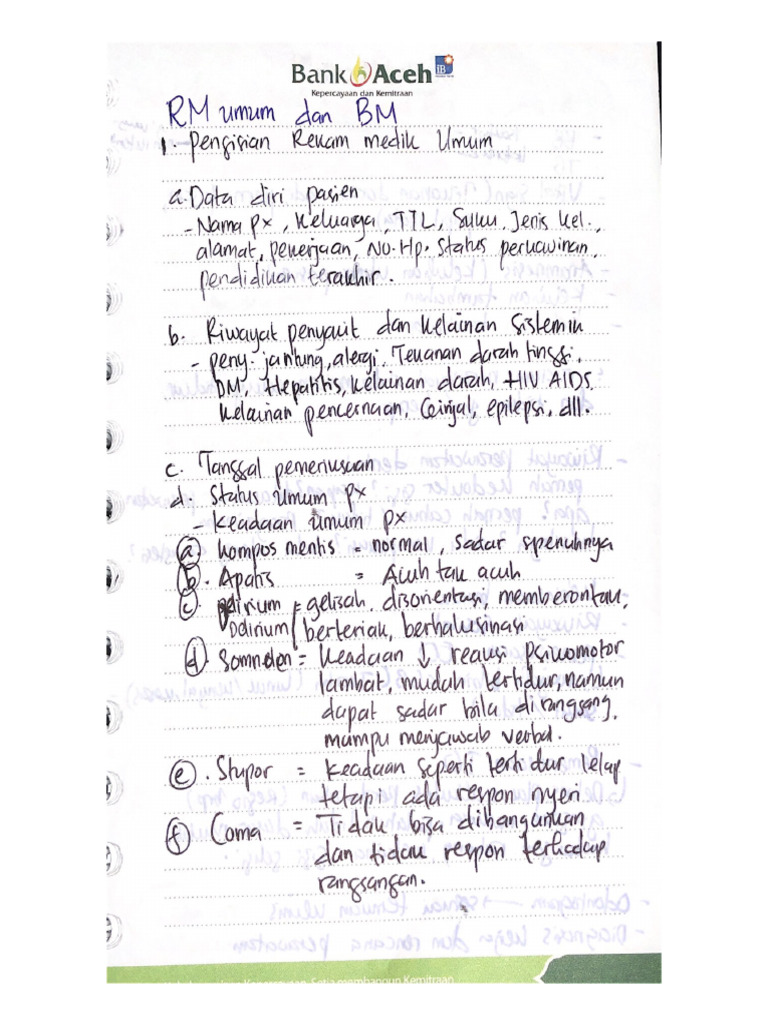 Bank Aceh
Kepercayaan dan Kemitraan
RM umum dan BM
1. Pengisian Rekam medik Umum
a. Data diri pasien
- Nama px, Keluarga, TTL, Suku, Jenis kel.,
alamat, pekerjaan, No. Hp. Status perkawinan,
pendidikan terakhir.
b. Riwayat penyakit dan kelainan Sistemik
- peny. jantung, alergi, Tekanan darah tinggi,
DM, Hepatitis, Kelainan darah, HIV AIDS
Kelainan pencernaan, Ginjal, epilepsi, dll.
c. Tanggal pemeriksaan
d. Status Umum px
- Keadaan Umum px
a kompos mentis = normal, sadar spenuhnya
b. Apatis = Acuh tak acuh
c. = gelisah, disorientasi, memberontak,
Ddirium berteriak, berhalusinasi
d. Somnolen = Keadaan ↓ reaksi psikomotor
lambat, mudah tertidur, namun
dapat sadar bila dirangsang,
mampu menjawab verbal.
e. Stupor = Keadaan seperti tertidur lelap
tetapi ada respon nyeri
f Coma = Tidak bisa dibangunkan
dan tidak respon terhadap
rangsangan.